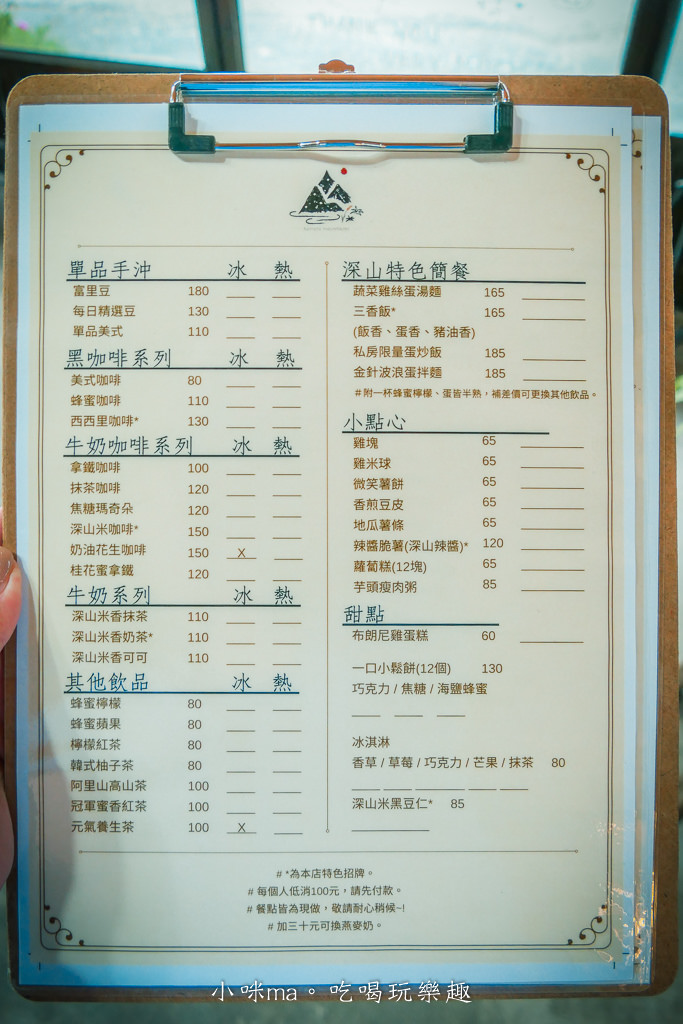 單品手沖 冰 熱
富里豆 180 ____ ____
每日精選豆 130 ____ ____
單品美式 110 ____ ____
黑咖啡系列 冰 熱
美式咖啡 80 ____ ____
蜂蜜咖啡 110 ____ ____
西西里咖啡* 130 ____ ____
牛奶咖啡系列 冰 熱
拿鐵咖啡 100 ____ ____
抹茶咖啡 120 ____ ____
焦糖瑪奇朵 120 ____ ____
深山米咖啡* 150 ____ ____
奶油花生咖啡 150 X ____
桂花蜜拿鐵 120 ____ ____
牛奶系列 冰 熱
深山米香抹茶 110 ____ ____
深山米香奶茶* 110 ____ ____
深山米香可可 110 ____ ____
其他飲品 冰 熱
蜂蜜檸檬 80 ____ ____
蜂蜜蘋果 80 ____ ____
檸檬紅茶 80 ____ ____
韓式柚子茶 80 ____ ____
阿里山高山茶 100 ____ ____
冠軍蜜香紅茶 100 ____ ____
元氣養生茶 100 X ____
深山特色簡餐
蔬菜雞絲蛋湯麵 165 ________
三香飯* 165 ________
(飯香、蛋香、豬油香)
私房限量蛋炒飯 185 ________
金針波浪蛋拌麵 185 ________
#附一杯蜂蜜檸檬、蛋皆半熟，補差價可更換其他飲品。
小點心
雞塊 65 ________
雞米球 65 ________
微笑薯餅 65 ________
香煎豆皮 65 ________
地瓜薯條 65 ________
辣醬脆薯(深山辣醬)* 120 ________
蘿蔔糕(12塊) 65 ________
芋頭瘦肉粥 85 ________
甜點
布朗尼雞蛋糕 60 ________
一口小鬆餅(12個) 130
巧克力 / 焦糖 / 海鹽蜂蜜
____ ____ ____
冰淇淋
香草 / 草莓 / 巧克力 / 芒果 / 抹茶 80
____ ____ ____ ____ ____
深山米黑豆仁* 85
________
# *為本店特色招牌。
# 每個人低消100元，請先付款。
# 餐點皆為現做，敬請耐心稍候~!
# 加三十元可換燕麥奶。
小咪ma。吃喝玩樂趣